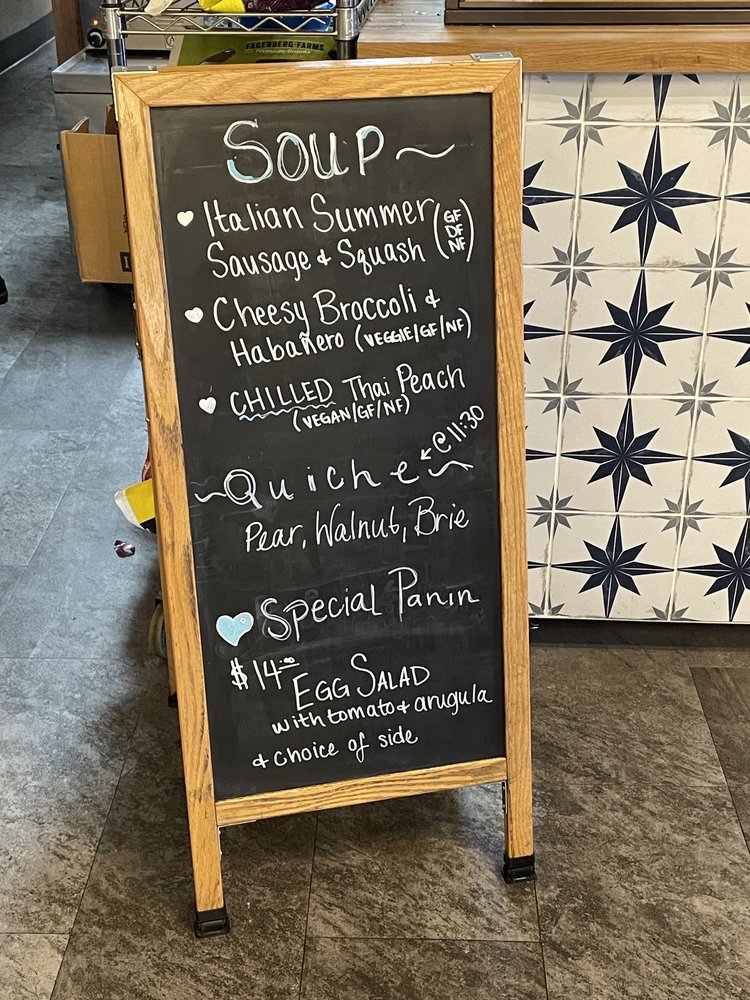 FAGERBERG FARMS
Premium Onions
SOUP ~
Italian Summer
Sausage & Squash (GF DF NF)
Cheesy Broccoli &
Habañero (VEGGIE/GF/NF)
CHILLED Thai Peach
(VEGAN/GF/NF)
@ 11:30
~Quiche~
Pear, Walnut, Brie
Special Panin
$14.00
EGG SALAD
with tomato & arugula
& choice of side